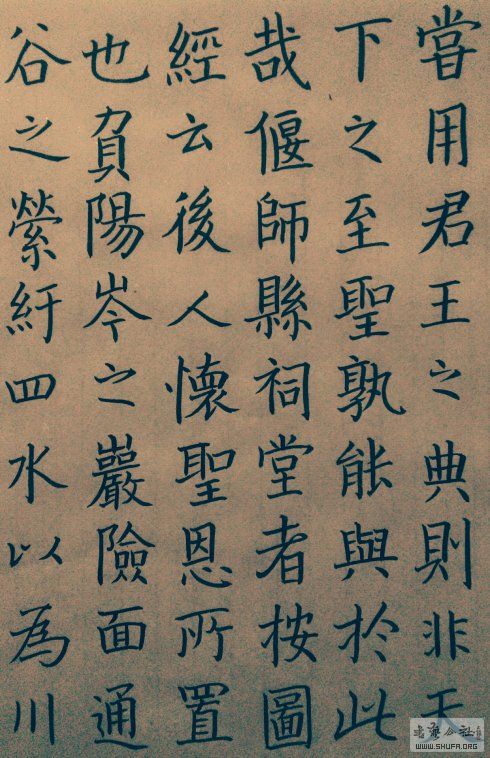 嘗用君王之典則非天
下之至聖孰能與於此
哉偃師縣祠堂者按圖
經云後人懷聖恩所置
也負陽岑之巖險面通
谷之縈紆四水以為川
WWW.SHUFA.ORG